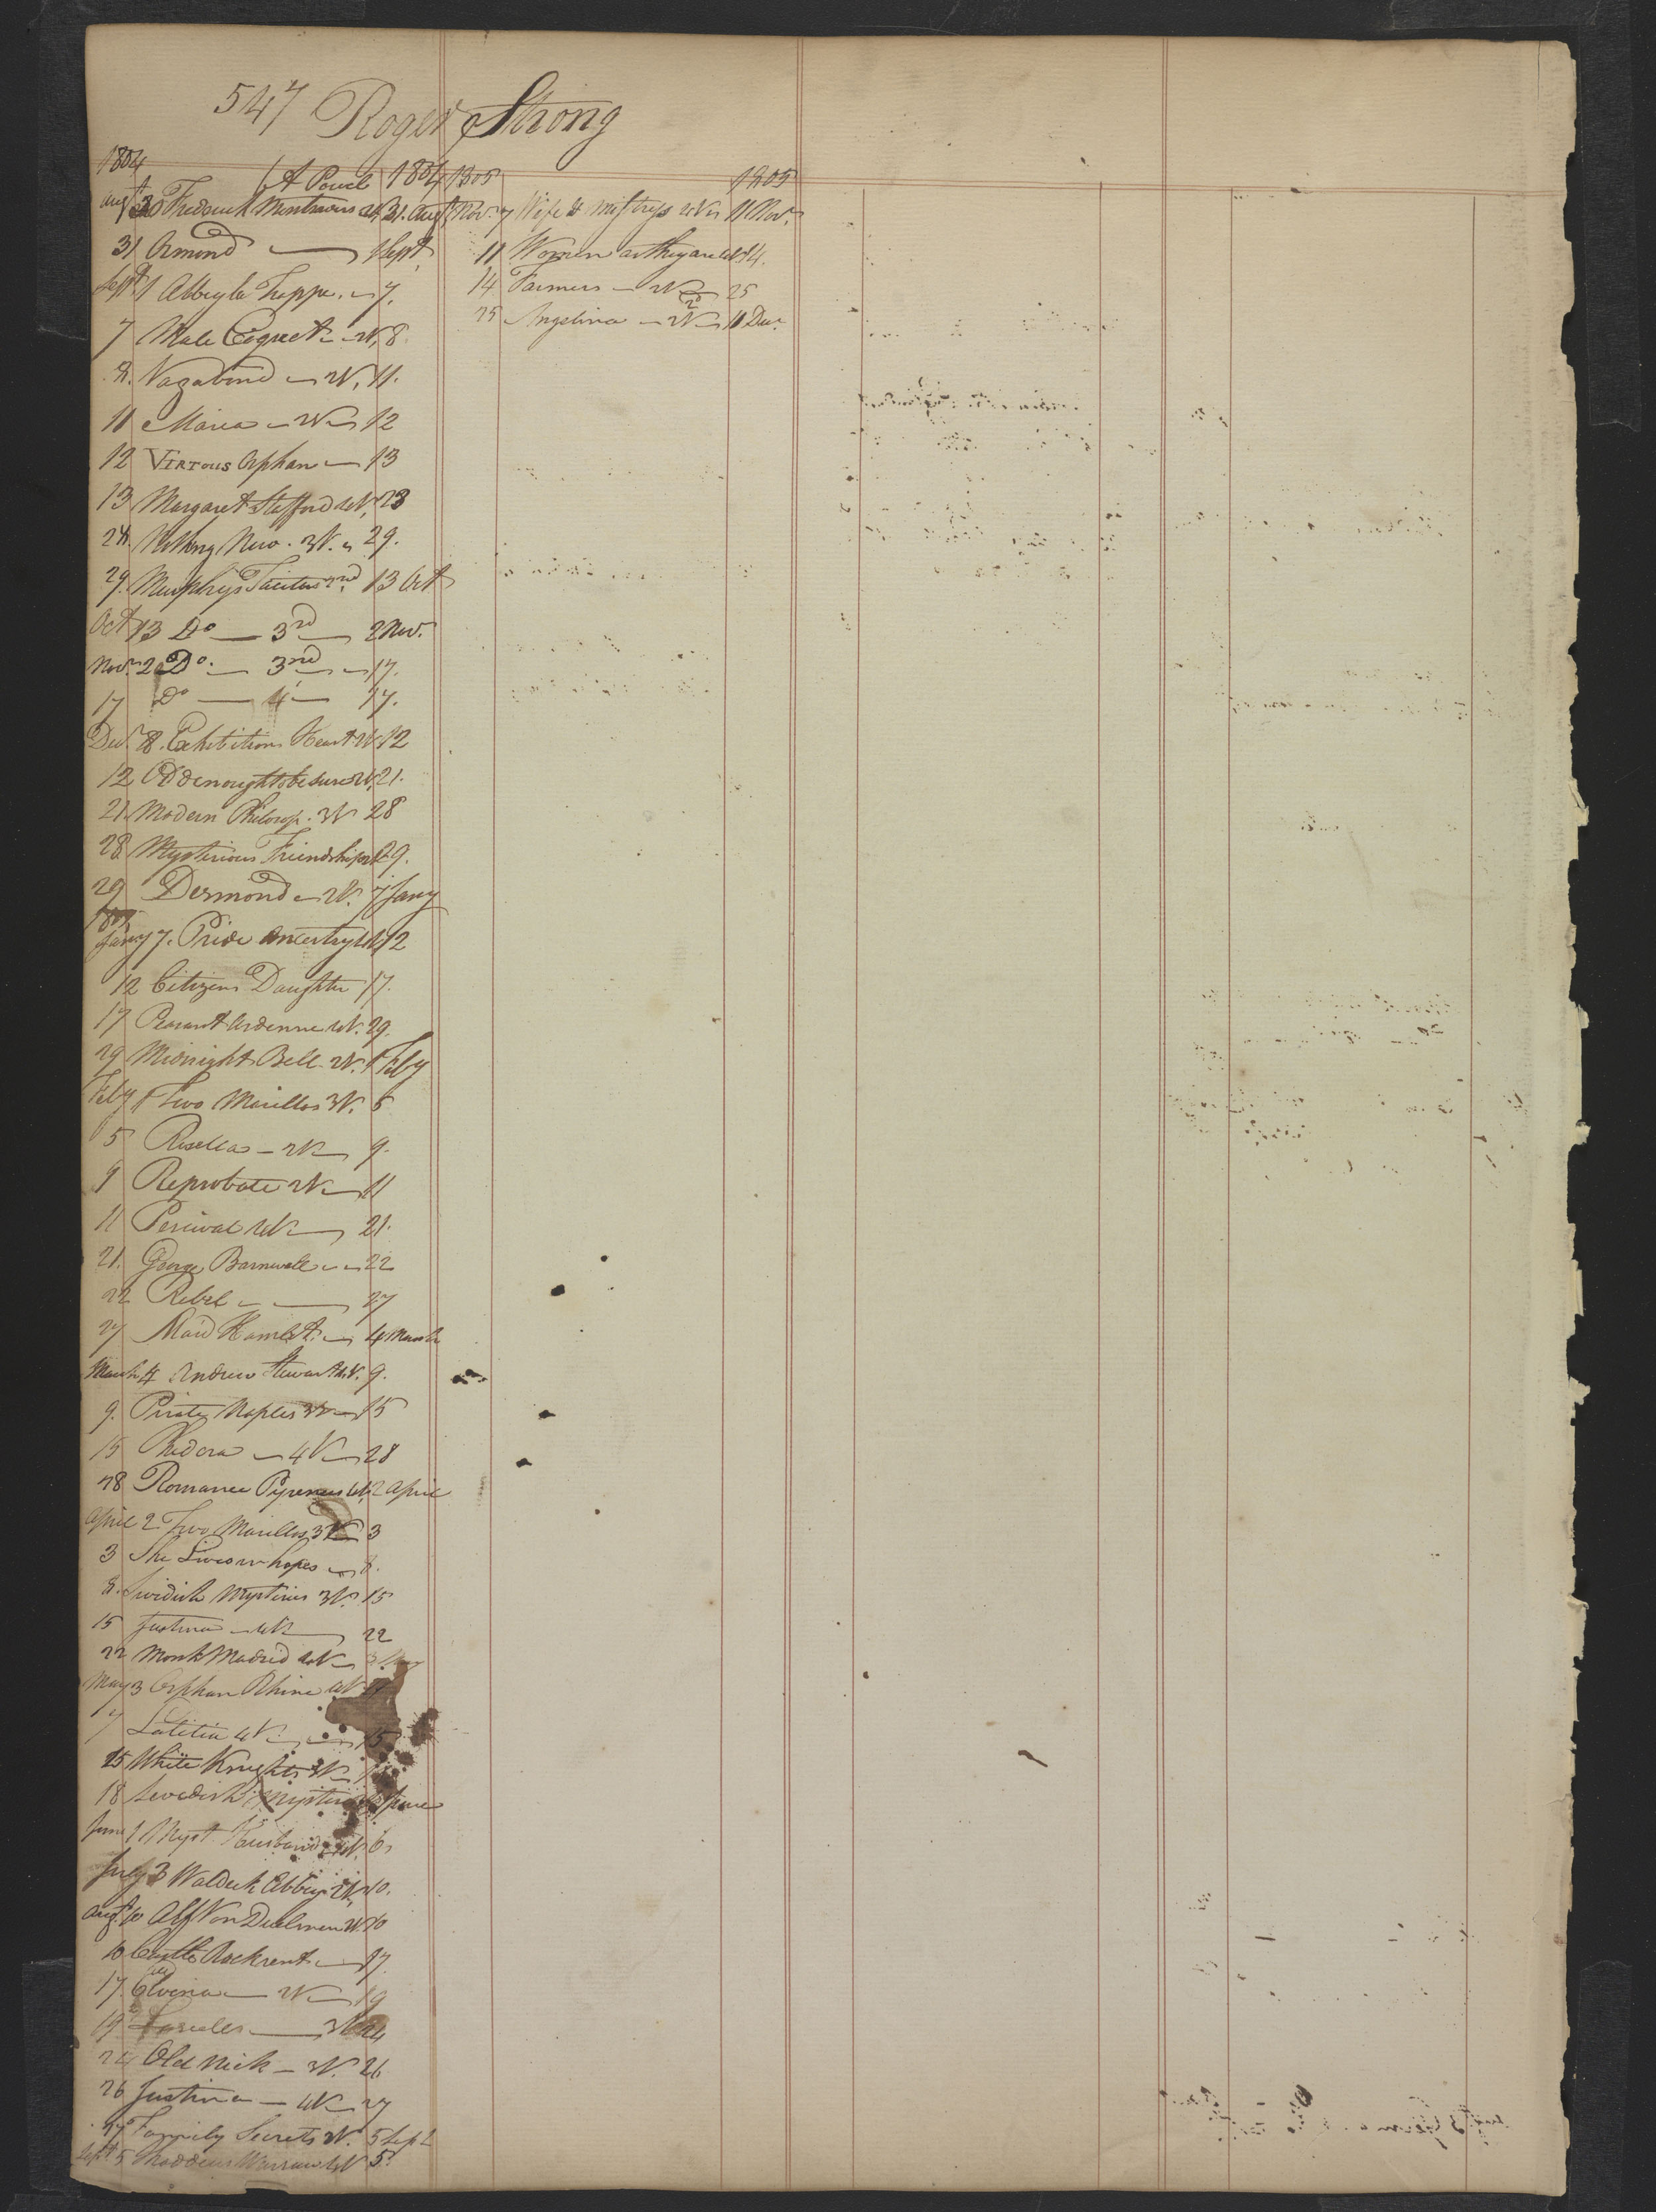 547 Roger Strong
1804 1804
Augt 30 Frederick Montravers 31. Augt
31 Armond — 1 Sept
Sept 1 Abbey la Trappe. 7.
7 Male Coquet 2V. 8.
8. Vagabond 2V. 11.
11 Maria 2V 12
12 VIRTOUS Orphan — 13
13 Margaret Stafford 23
24. Nothing New. 3V. 29.
29. Murphys Tacitus 2nd. 13 Oct
Oct 13 Do — 3rd — 2 Nov.
Novr. 2 Do. — 3rd — 17.
17 Do — 4 — 17.
Decr. 8. Exhibitions Heart 12
12 Odd enough to be sure 2V. 21.
21 Modern Philosop. 3V 28
28 Mysterious Friendship 29.
29 Desmond 2V. 7 Jany
1805
Jany 7. Pride Ancestry 12
12 Citizens Daughter 17.
17 Peasant Ardenne 29.
29 Midnight Bell 2V. 1 Feby
Feby 1 Two Marillos 3V. 5
5 Rosella 2V 9.
9 Reprobate 2V 11
11 Percival 21.
21. George Barnwell 22
22 Rebel — 27
27 Maid Hamlet. 4 March
March 4 Andrew Stewart 9.
9. Pirate Naples 3V 15
15 Phedora 4V 28
28 Romance Pyrenees 2 April
April 2 Two Marillos 3V 3
3 She Lives in hopes 8.
8. Swedish Mysteries 3V. 15
15 Justina 22
22 Monk Madrid
May 3 Orphan Rhine
7 Latitia 4V. 15
15 White Knight 3V
18 Swedish Mysteries June
June 1 Myst. Husband 6
July 3 Waldeck Abbey 2V 10.
Augt. 10 Alf Von Duelmen 10
10 Castle Rackrent — 17.
17. Elvina — 2V 19
19 3V 24
24 Old Nick — 3V. 26
26 Justina — 4V 27
27 Family Secrets 5 Sept
Sept 5 5.
1805 1805
Nov. 7 Wife & Mistress 11 Nov.
11 Women as they are 14.
14 Farmers — 25
25 Angelina — 2V 11 Dec.